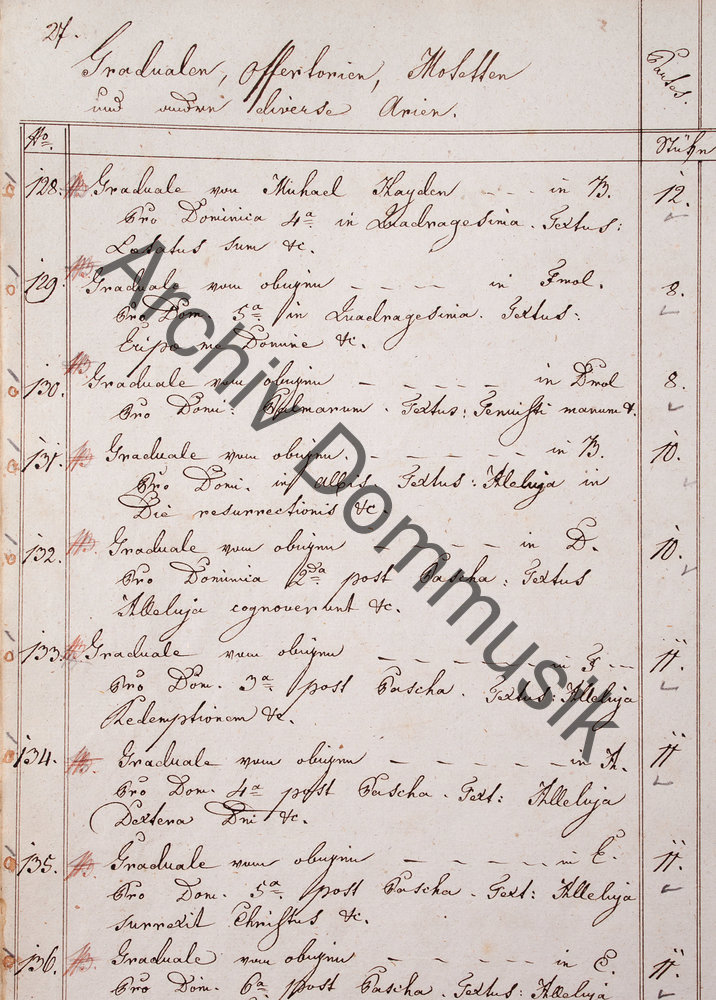 27.
Gradualen, Offertorien, Motetten
und andere diverse Arien.
Partes.
No.
Stück
128. Graduale von Michael Hayden - - - in B. 12.
Pro Dominica 4a. in Quadragesima. Textus:
Laetatus sum &c.
129. Graduale vom obigen - - - - in Fmol. 8.
Pro Dom. 5a. in Quadragesima. Textus:
Eripe me Domine &c.
130. Graduale vom obigen - - - - - in Dmol 8.
Pro Domi: Palmarum. Textus: Tenuisti manum &.
131. Graduale vom obigen. - - - - - in B. 10.
Pro Domi. in Albis Textus: Aleluja in
Die resurrectionis &c.
132. Graduale vom obigen - - - - in D. 10.
Pro Dominica 2da post Pascha: Textus
Alleluja cognoverunt &c.
133. Graduale vom obigen - - - - - - in F - - 11.
Pro Dom. 3a. post Pascha. Textus: Alleluja
Redemptionem &c.
134. Graduale vom obigen - - - - - - in A. 11
Pro Dom. 4a. post Pascha. Text: Alleluja
Dextera Dni &c.
135. Graduale vom obigen - - - - - in E. 11.
Pro Dom. 5a. post Pascha. Text: Alleluja
surrexit Christus &c.
136. Graduale vom obigen - - - - - in C. 11.
Pro Dom. 6a post Pascha. Textus: Alleluja
Archiv Dommusik